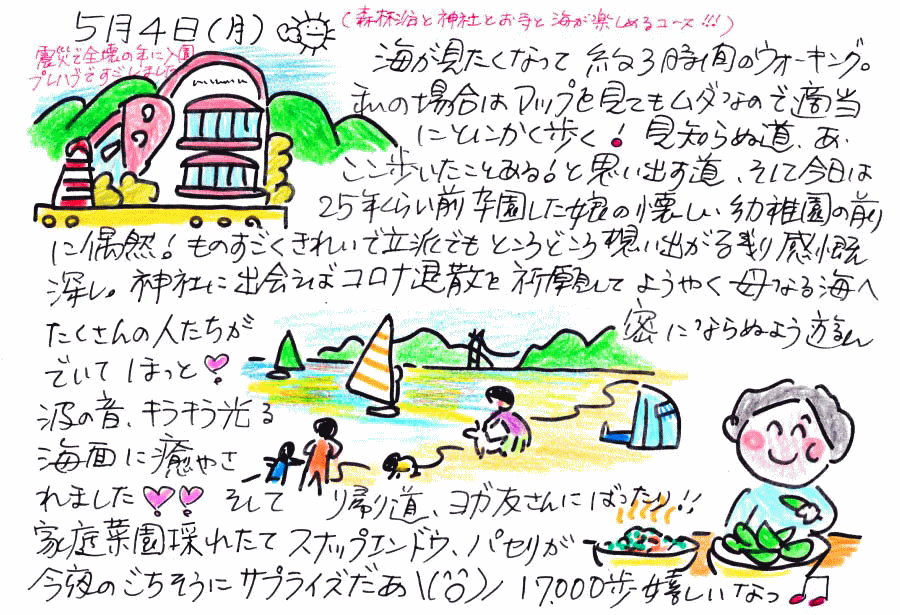 5月4日(月)
(森林浴と神社とお寺と海が楽しめるコース!!!)
震災で全壊の年に入園
プレハブですごしました
海が見たくなって 約3時間のウォーキング。
私の場合はマップを見てもムダなので適当
にとにかく歩く! 見知らぬ道、あ、
ここ歩いたことある!と思い出す道、そして今日は
25年くらい前 卒園した娘の懐しい幼稚園の前
に偶然! ものすごくきれいで立派でもところどころ想い出がる残り感慨
深し。神社に出会えばコロナ退散を祈願して ようやく母なる海へ
たくさんの人たちが 密にならぬよう遊ん
でいて ほっと♡
波の音、キラキラ光る
海面に癒やさ
れました♡♡ そして 帰り道、ヨガ友さんにばったり!!
家庭菜園採れたて スナップエンドウ、パセリが
今夜のごちそうにサプライズだあ \(^o^)/ 17,000歩嬉しいなっ♫